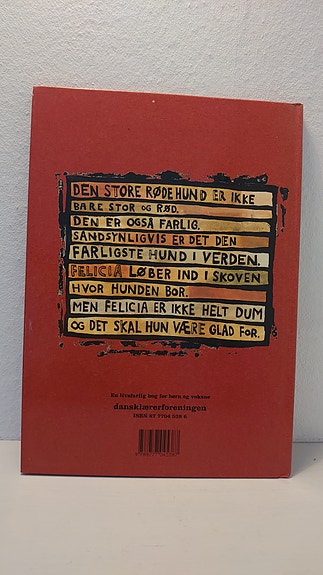 DEN STORE RØDE HUND ER IKKE
BARE STOR OG RØD.
DEN ER OGSÅ FARLIG.
SANDSYNLIGVIS ER DET DEN
FARLIGSTE HUND I VERDEN.
FELICIA LØBER IND I SKOVEN
HVOR HUNDEN BOR.
MEN FELICIA ER IKKE HELT DUM
OG DET SKAL HUN VÆRE GLAD FOR.
En livsfarlig bog for børn og voksne
dansklærerforeningen